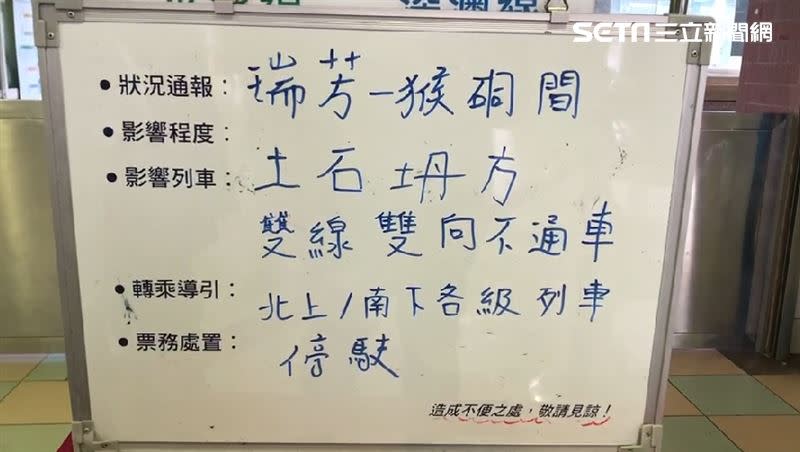 SETN三立新聞網
深澳線
• 狀況通報： 瑞芳－猴硐間
• 影響程度：
• 影響列車： 土石坍方
雙線雙向不通車
• 轉乘導引： 北上/南下各級列車
• 票務處置： 停駛
造成不便之處，敬請見諒！